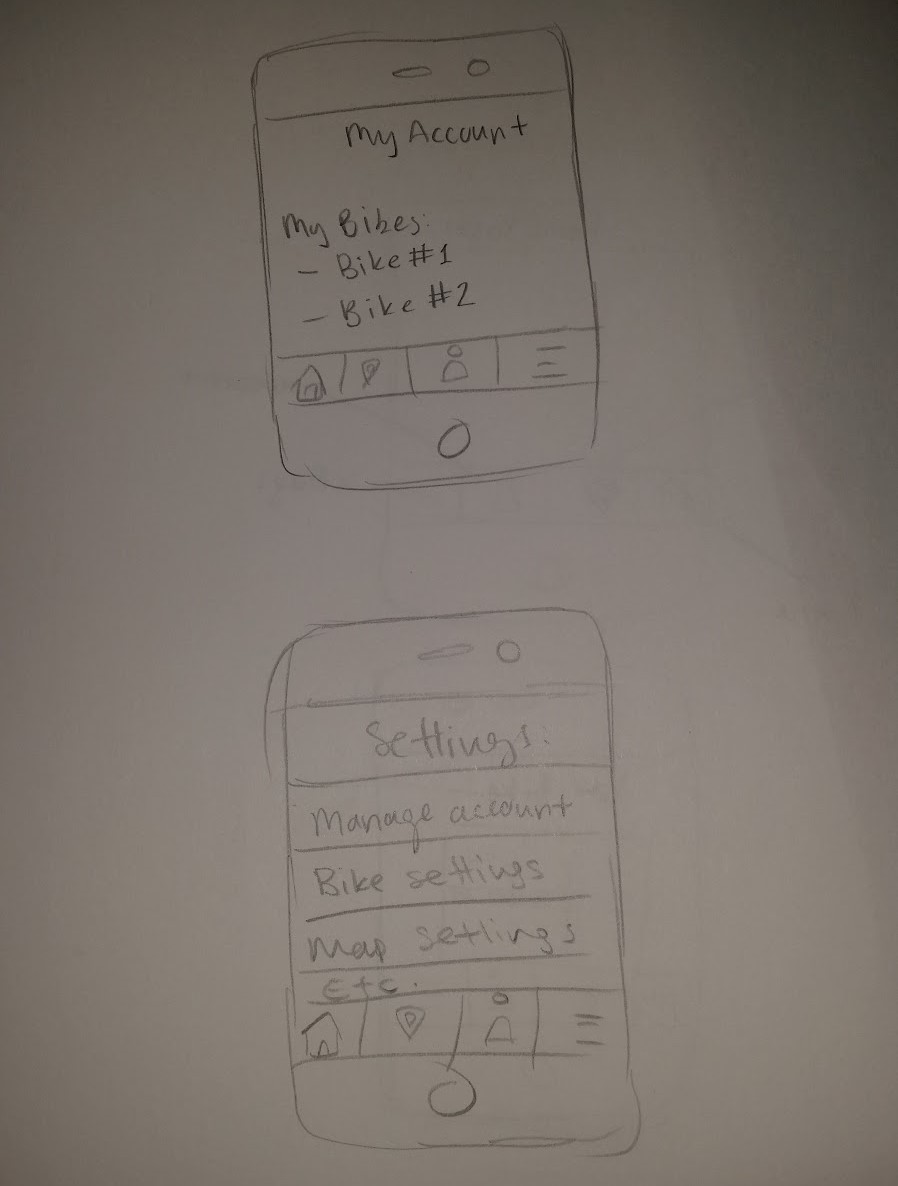 My Account
My Bikes:
- Bike #1
- Bike #2
Settings:
Manage account
Bike settings
Map settings
Etc.